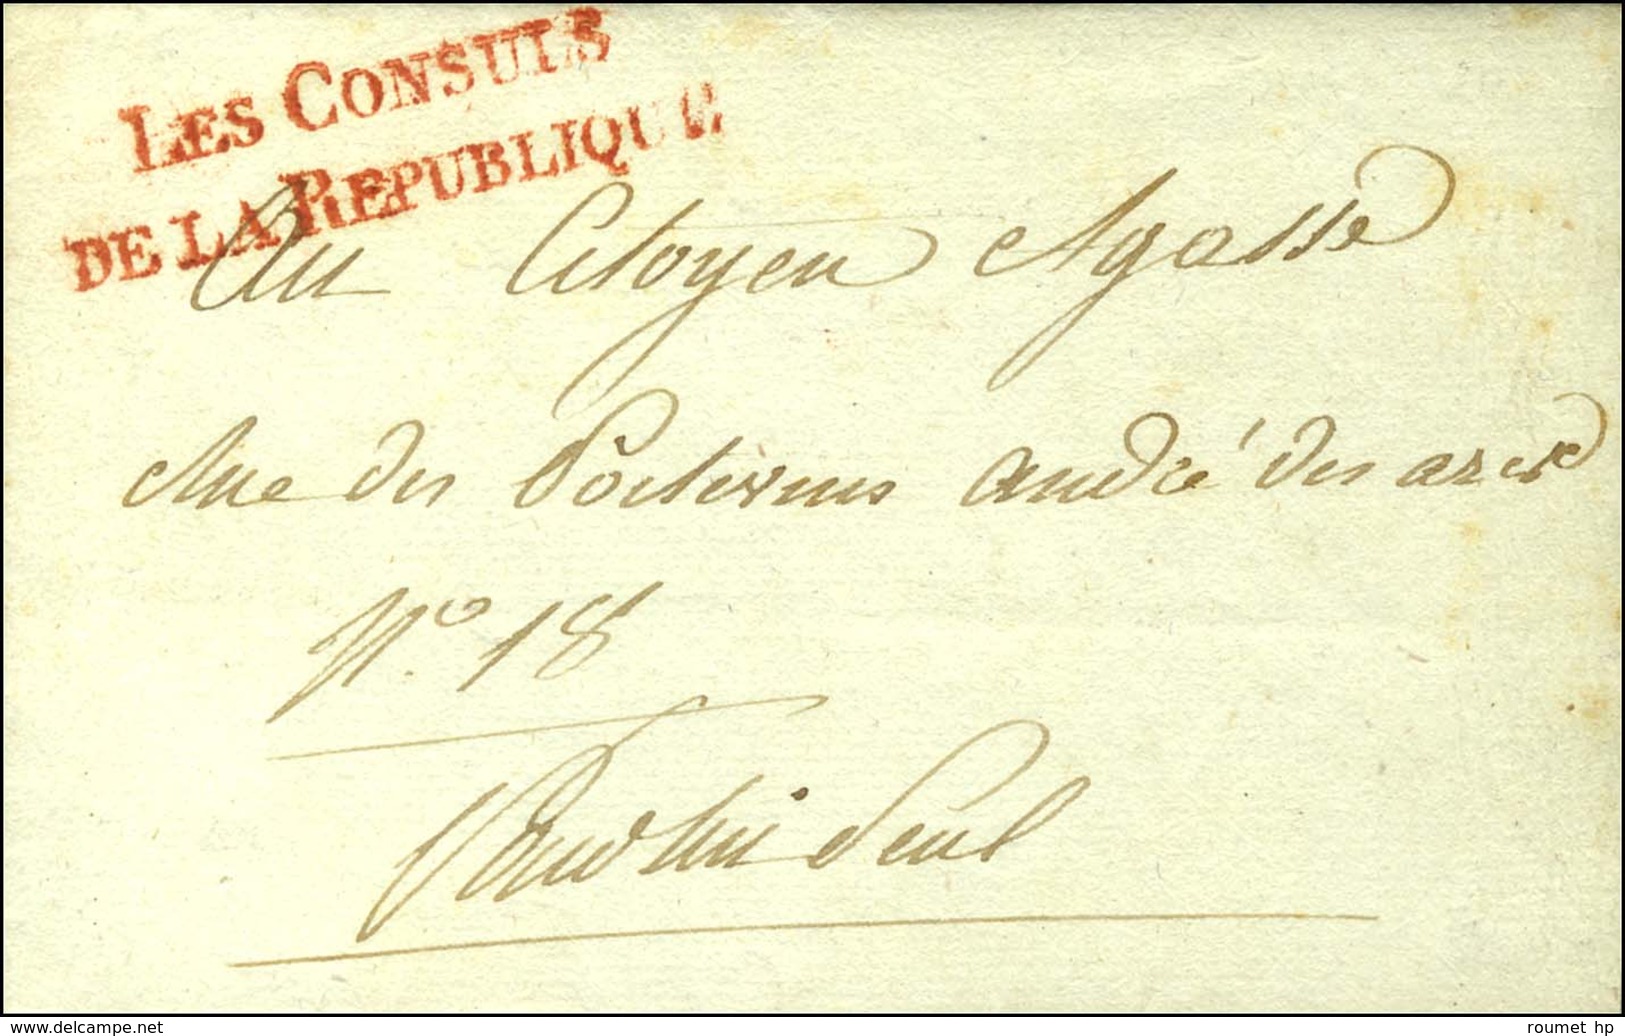 LES CONSULS
DE LA REPUBLIQUE
Au Citoyen Agasse
Rue des Poitevins andré des arcs
N.° 18
Pour lui Seul
www.delcampe.net
roumet hp